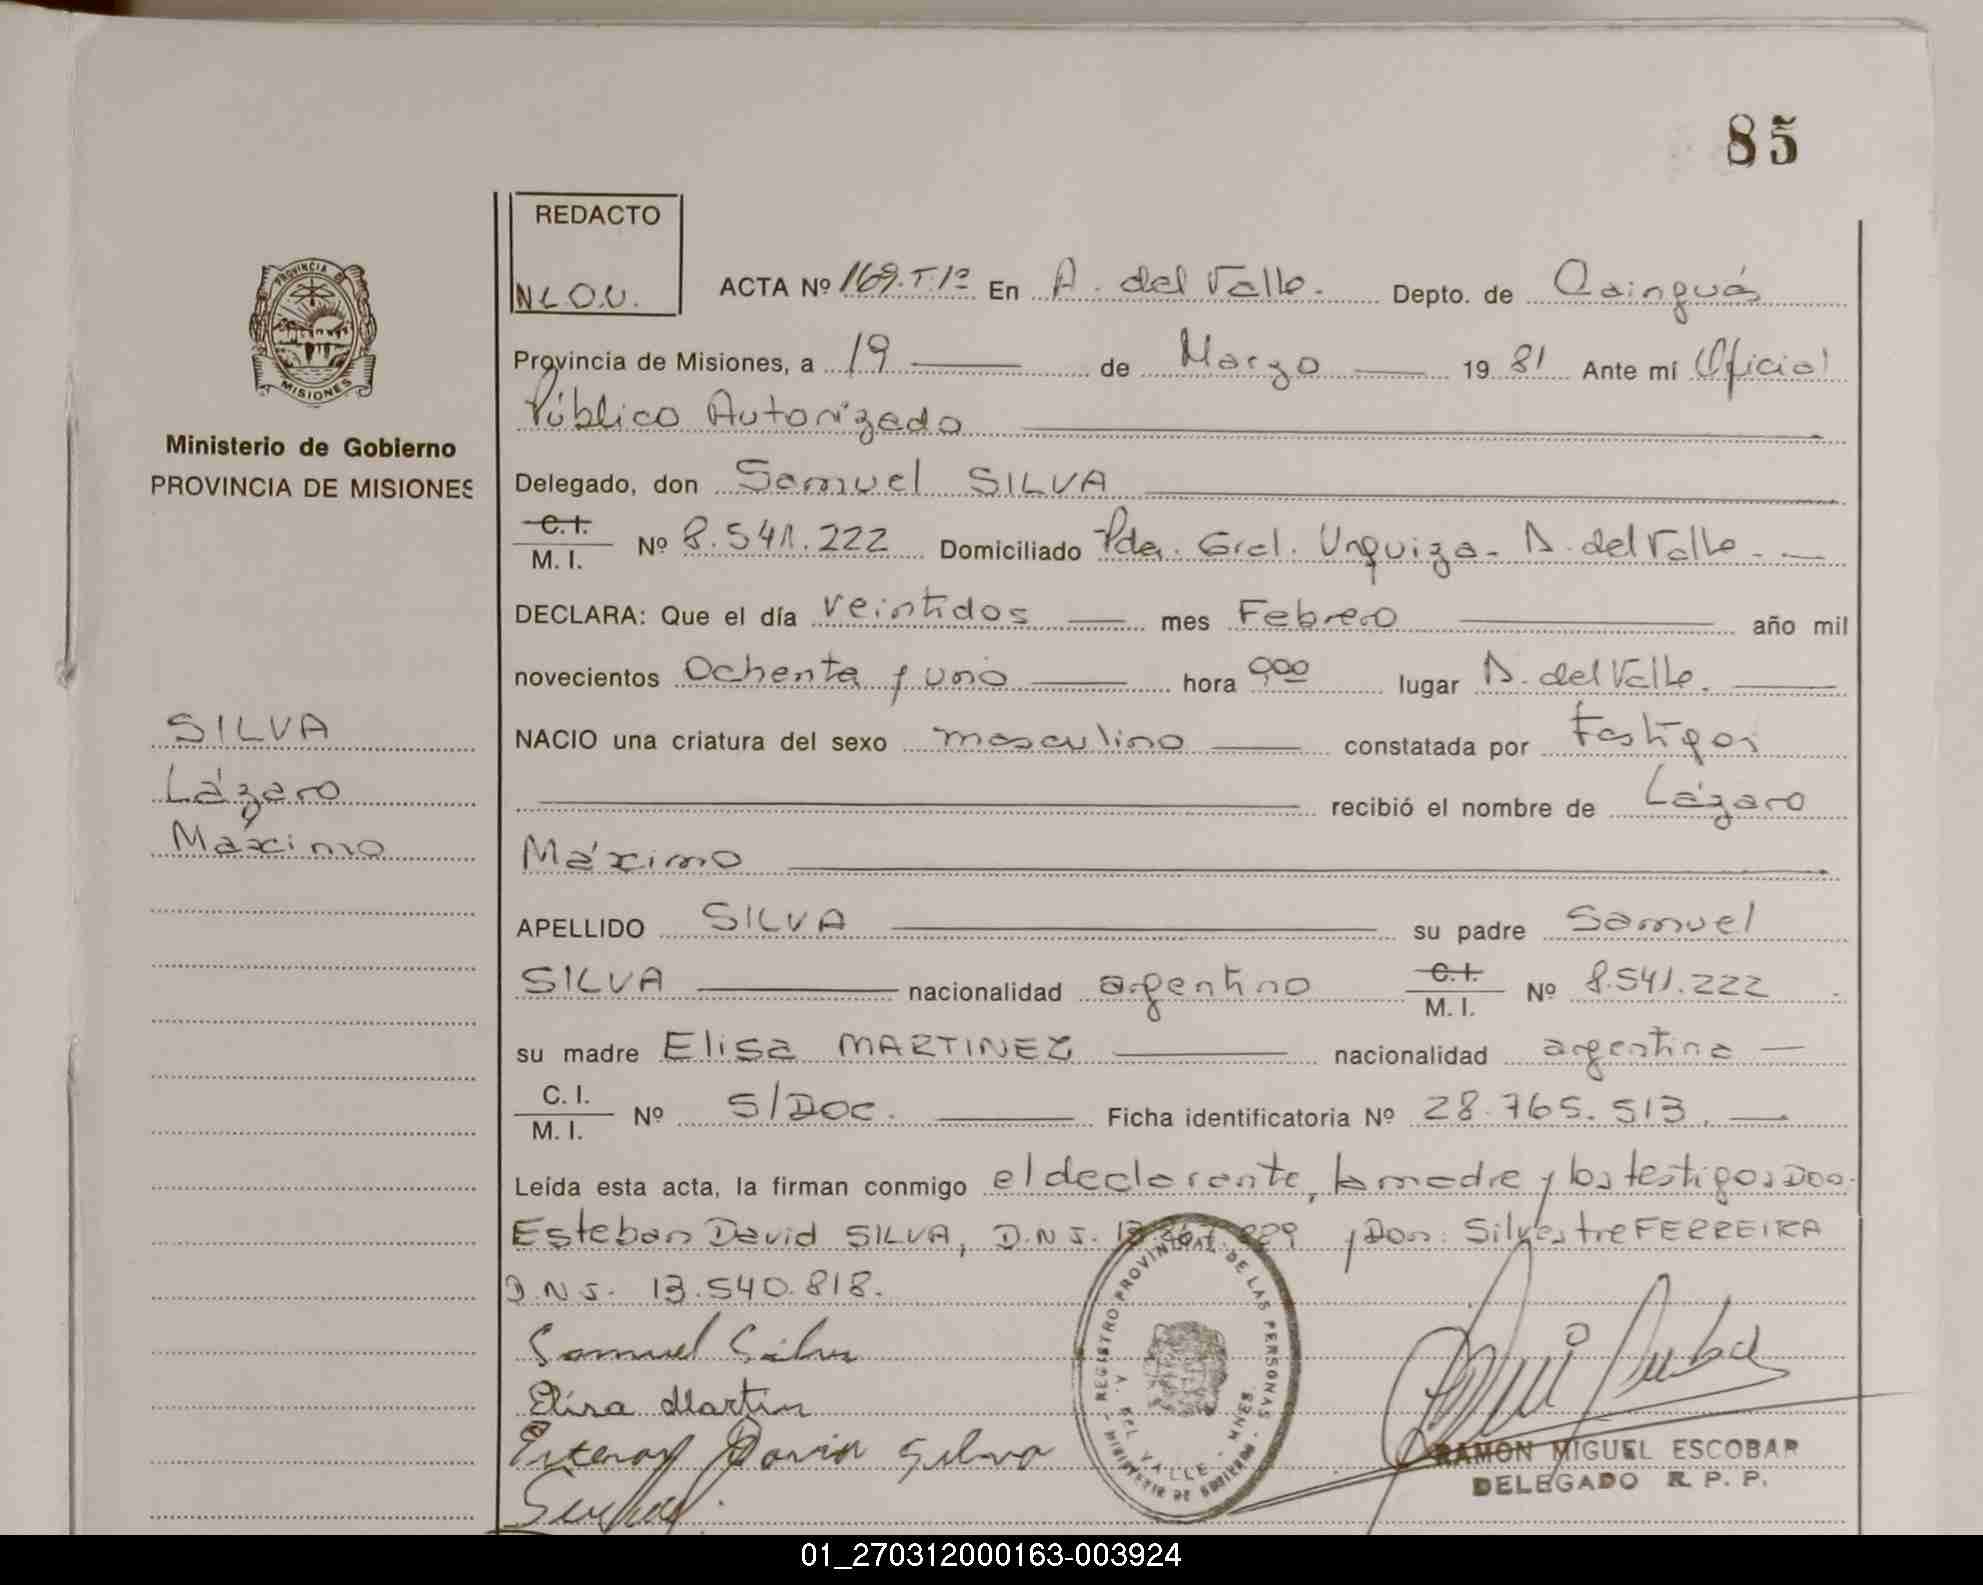 85
REDACTO
N.L.O.U.
ACTA Nº 169.T.1º En A. del Valle. Depto. de Cainguás
Provincia de Misiones, a 19 de Marzo 1981 Ante mí Oficial
Público Autorizado
Delegado, don Samuel SILVA
C.I. / M. I. Nº 8.541.222 Domiciliado Pda. Gral. Urquiza - A. del Valle.
DECLARA: Que el día veintidos mes Febrero año mil
novecientos Ochenta y uno hora 9,00 lugar A. del Valle.
NACIO una criatura del sexo masculino constatada por testigos
recibió el nombre de Lázaro
Máximo
APELLIDO SILVA su padre Samuel
SILVA nacionalidad argentino C.I. / M. I. Nº 8.541.222
su madre Elisa MARTINEZ nacionalidad argentina
C. I. / M. I. Nº S/Doc. Ficha identificatoria Nº 28.765.513
Leída esta acta, la firman conmigo el declarante, la madre y los testigos Don.
Esteban David SILVA, D.N.I. y Don: Silvestre FERREIRA
D.N.I. 13.540.818.
Samuel Silva
Elisa Martin
David Silva
PROVINCIA DE
MISIONES
Ministerio de Gobierno
PROVINCIA DE MISIONES
SILVA
Lázaro
Máximo
REGISTRO PROVINCIAL DE LAS PERSONAS
A. DEL VALLE - MNES.
MINISTERIO DE GOBIERNO
RAMON MIGUEL ESCOBAR
DELEGADO R. P. P.
01_270312000163-003924